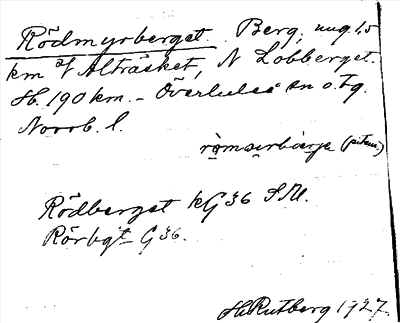 Rödmyrberget. Berg, ung. 1,5
km av Alträsket, N Lobberget.
H. 190 km. – Överluleå sn o. tg.
Norrb. l.
Rödberget kG 36 S.M.
Rörbgt G 36.
H. Rutberg 1927.